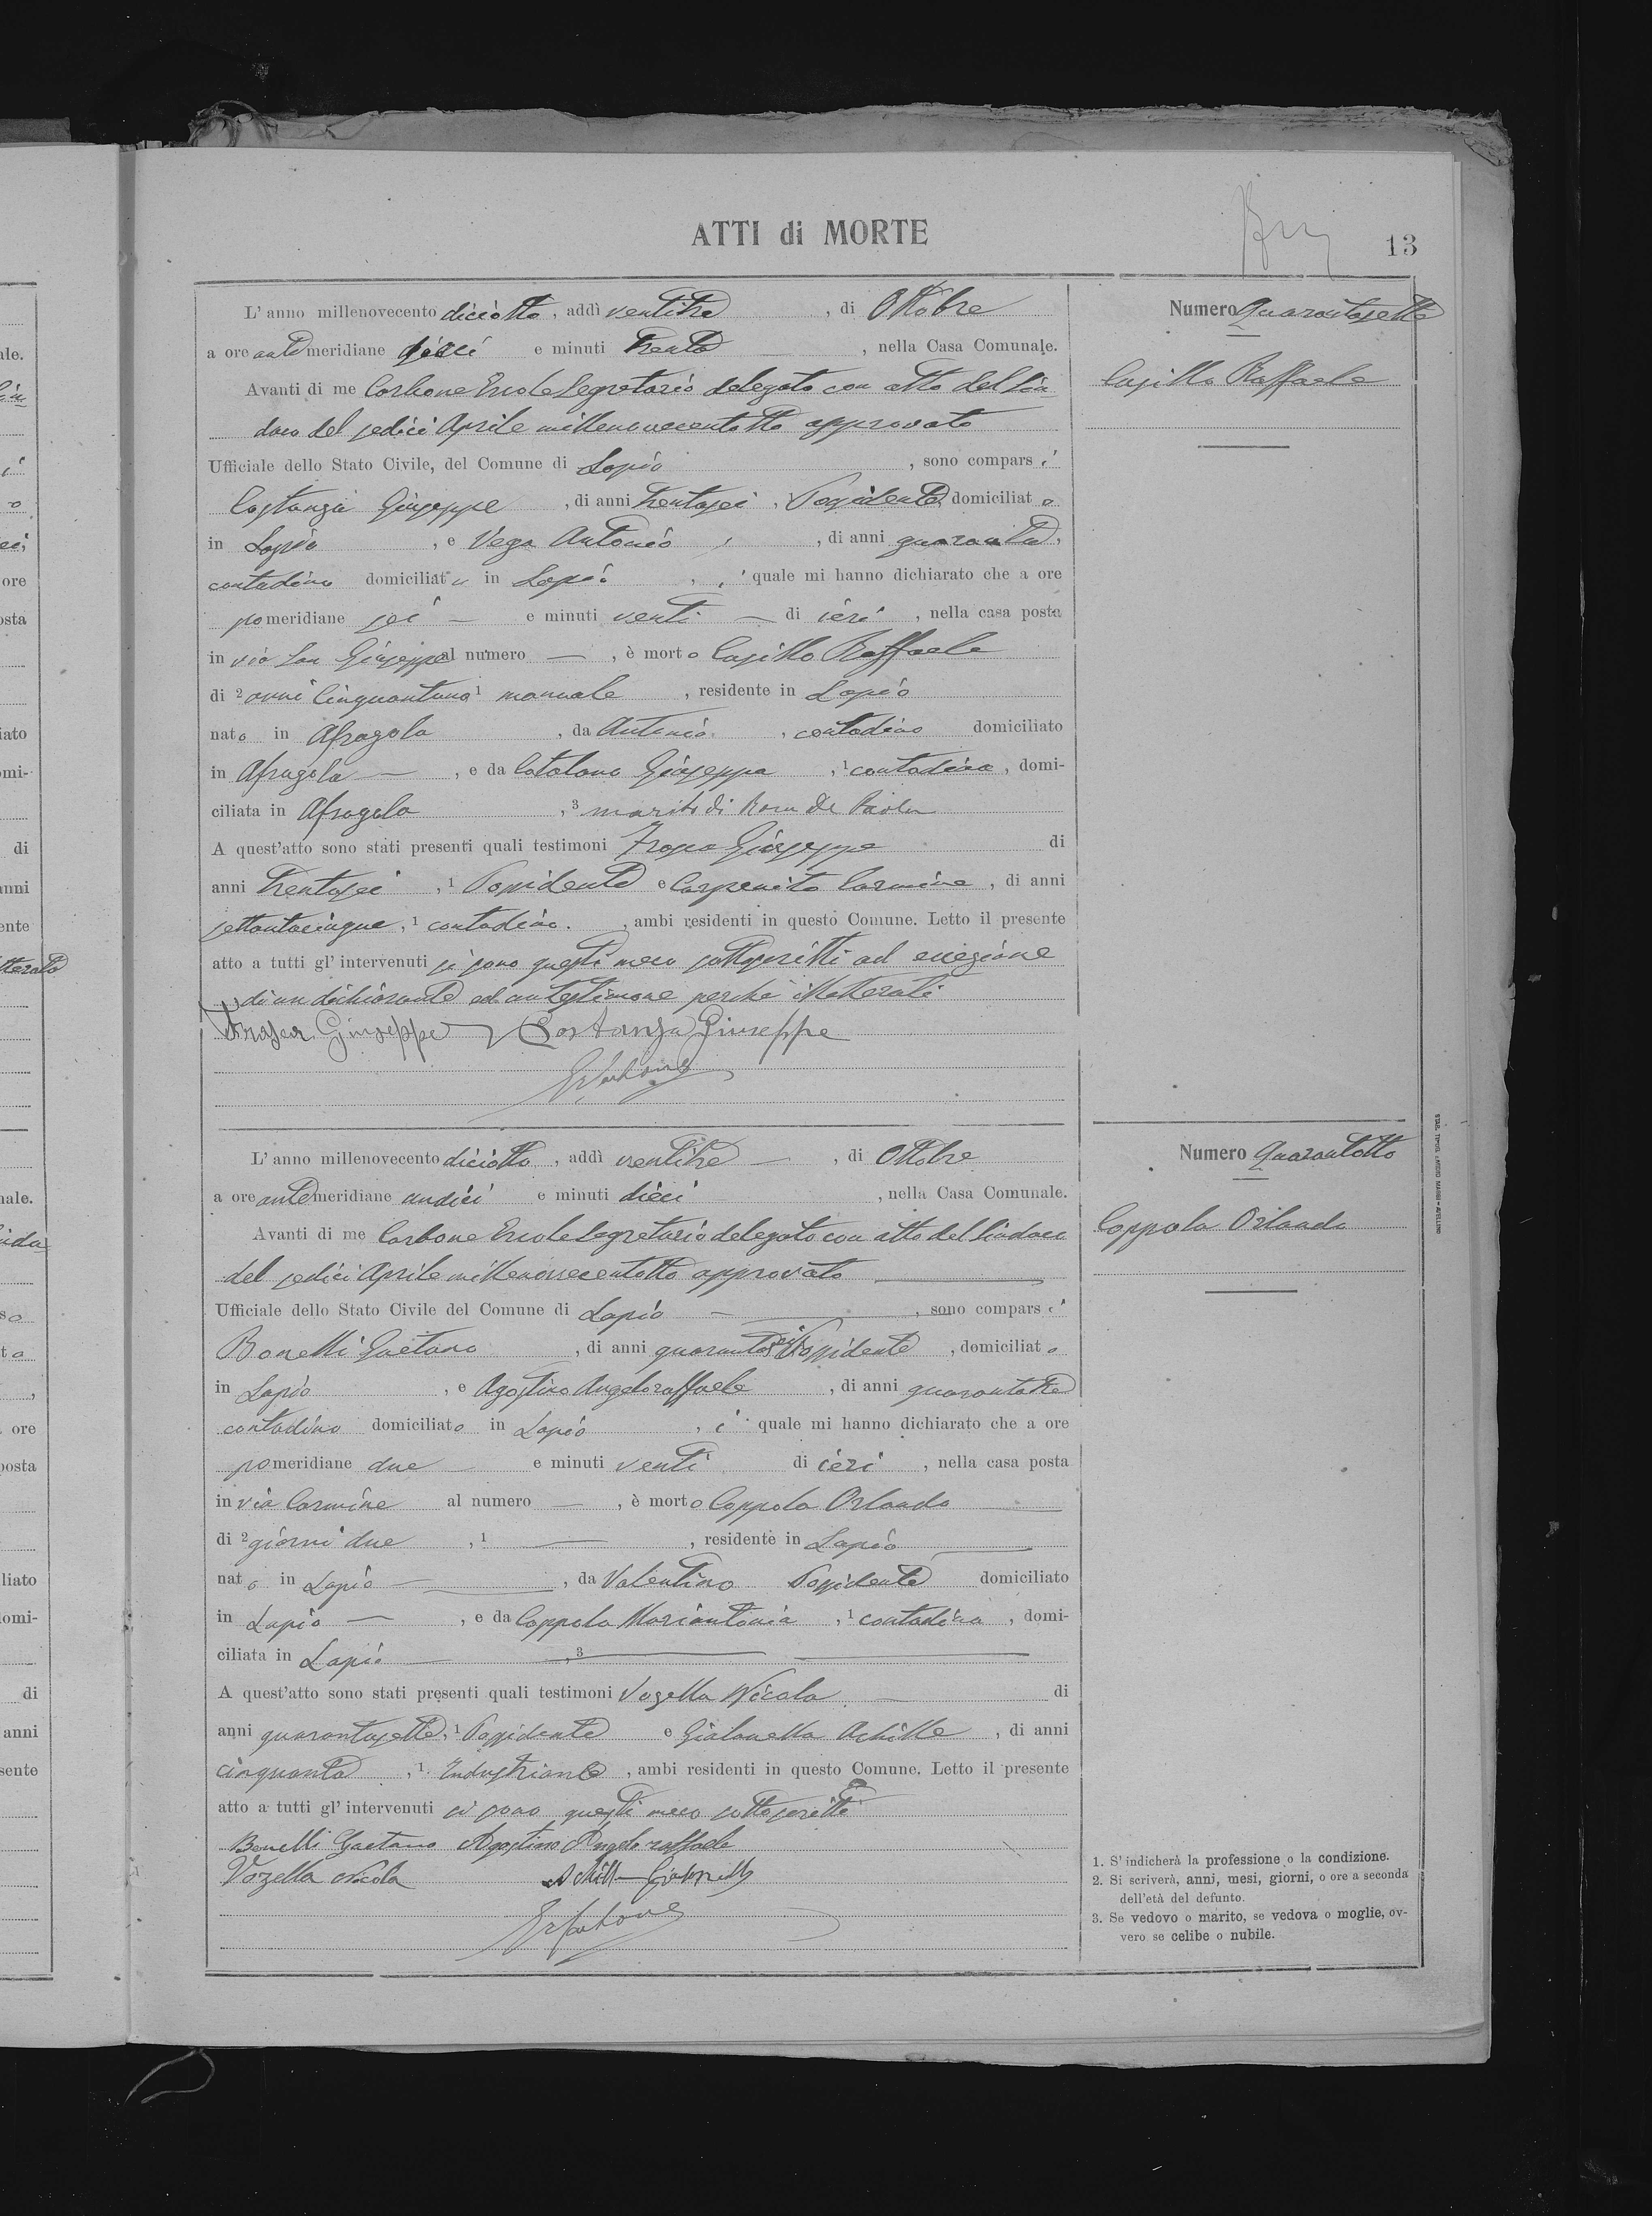 ATTI di MORTE
13
L'anno millenovecento diciotto, addì ventitre, di Ottobre
a ore antemeridiane dieci e minuti trenta, nella Casa Comunale.
Avanti di me Carbone Ercole Segretario delegato con atto del Sin
daco del sedici Aprile millenovecentotto approvato
Ufficiale dello Stato Civile, del Comune di Lapio, sono comparsi
Costanza Giuseppe, di anni trentasei, Possidente, domiciliato
in Lapio, e Vega Antonio, di anni quaranta,
contadino domiciliato in Lapio, i quale mi hanno dichiarato che a ore
pomeridiane sei e minuti venti di ieri, nella casa posta
in via San Giuseppe al numero —, è morto Casillo Raffaele
di 2 anni cinquantuno 1 manuale, residente in Lapio
nato in Afragola, da Antonio, contadino domiciliato
in Afragola —, e da Catalano Giuseppa, 1 contadina, domi-
ciliata in Afragola, 3 marito di Rosa De Paola
A quest'atto sono stati presenti quali testimoni Giuseppe di
anni trentasei, 1 Possidente e Carpenito Carmine, di anni
settantacinque, 1 contadino, ambi residenti in questo Comune. Letto il presente
atto a tutti gl'intervenuti si sono questi meco sottoscritti ad eccezione
di un dichiarante ed un testimone perchè illetterati
Giuseppe Costanza Giuseppe
ECarbone
Numero Quarantasette
Casillo Raffaele
L'anno millenovecento diciotto, addì ventitre —, di Ottobre
a ore antemeridiane undici e minuti dieci, nella Casa Comunale.
Avanti di me Carbone Ercole Segretario delegato con atto del Sindaco
del sedici Aprile millenovecentotto approvato —
Ufficiale dello Stato Civile del Comune di Lapio —, sono comparsi
Bonelli Gaetano, di anni quarantasei Possidente, domiciliato
in Lapio, e Agostino Angeloraffaele, di anni quarantatre
contadino domiciliato in Lapio, i quale mi hanno dichiarato che a ore
pomeridiane due e minuti venti di ieri, nella casa posta
in via Carmine al numero —, è morto Coppola Orlando
di 2 giorni due, 1 —, residente in Lapio —
nato in Lapio —, da Valentino Possidente domiciliato
in Lapio —, e da Coppola Mariantonia, 1 contadina, domi-
ciliata in Lapio —, 3 —
A quest'atto sono stati presenti quali testimoni Vozella Nicola — di
anni quarantasette, 1 Possidente e Gialonella Achille, di anni
cinquanta, 1 Industriante, ambi residenti in questo Comune. Letto il presente
atto a tutti gl'intervenuti si sono questi meco sottoscritti
Bonelli Gaetano Agostino Angeloraffaele
Vozella Nicola Achille Gialonella
ECarbone
Numero Quarantotto
Coppola Orlando
1. S'indicherà la professione o la condizione.
2. Si scriverà, anni, mesi, giorni, o ore a seconda
dell'età del defunto.
3. Se vedovo o marito, se vedova o moglie, ov-
vero se celibe o nubile.